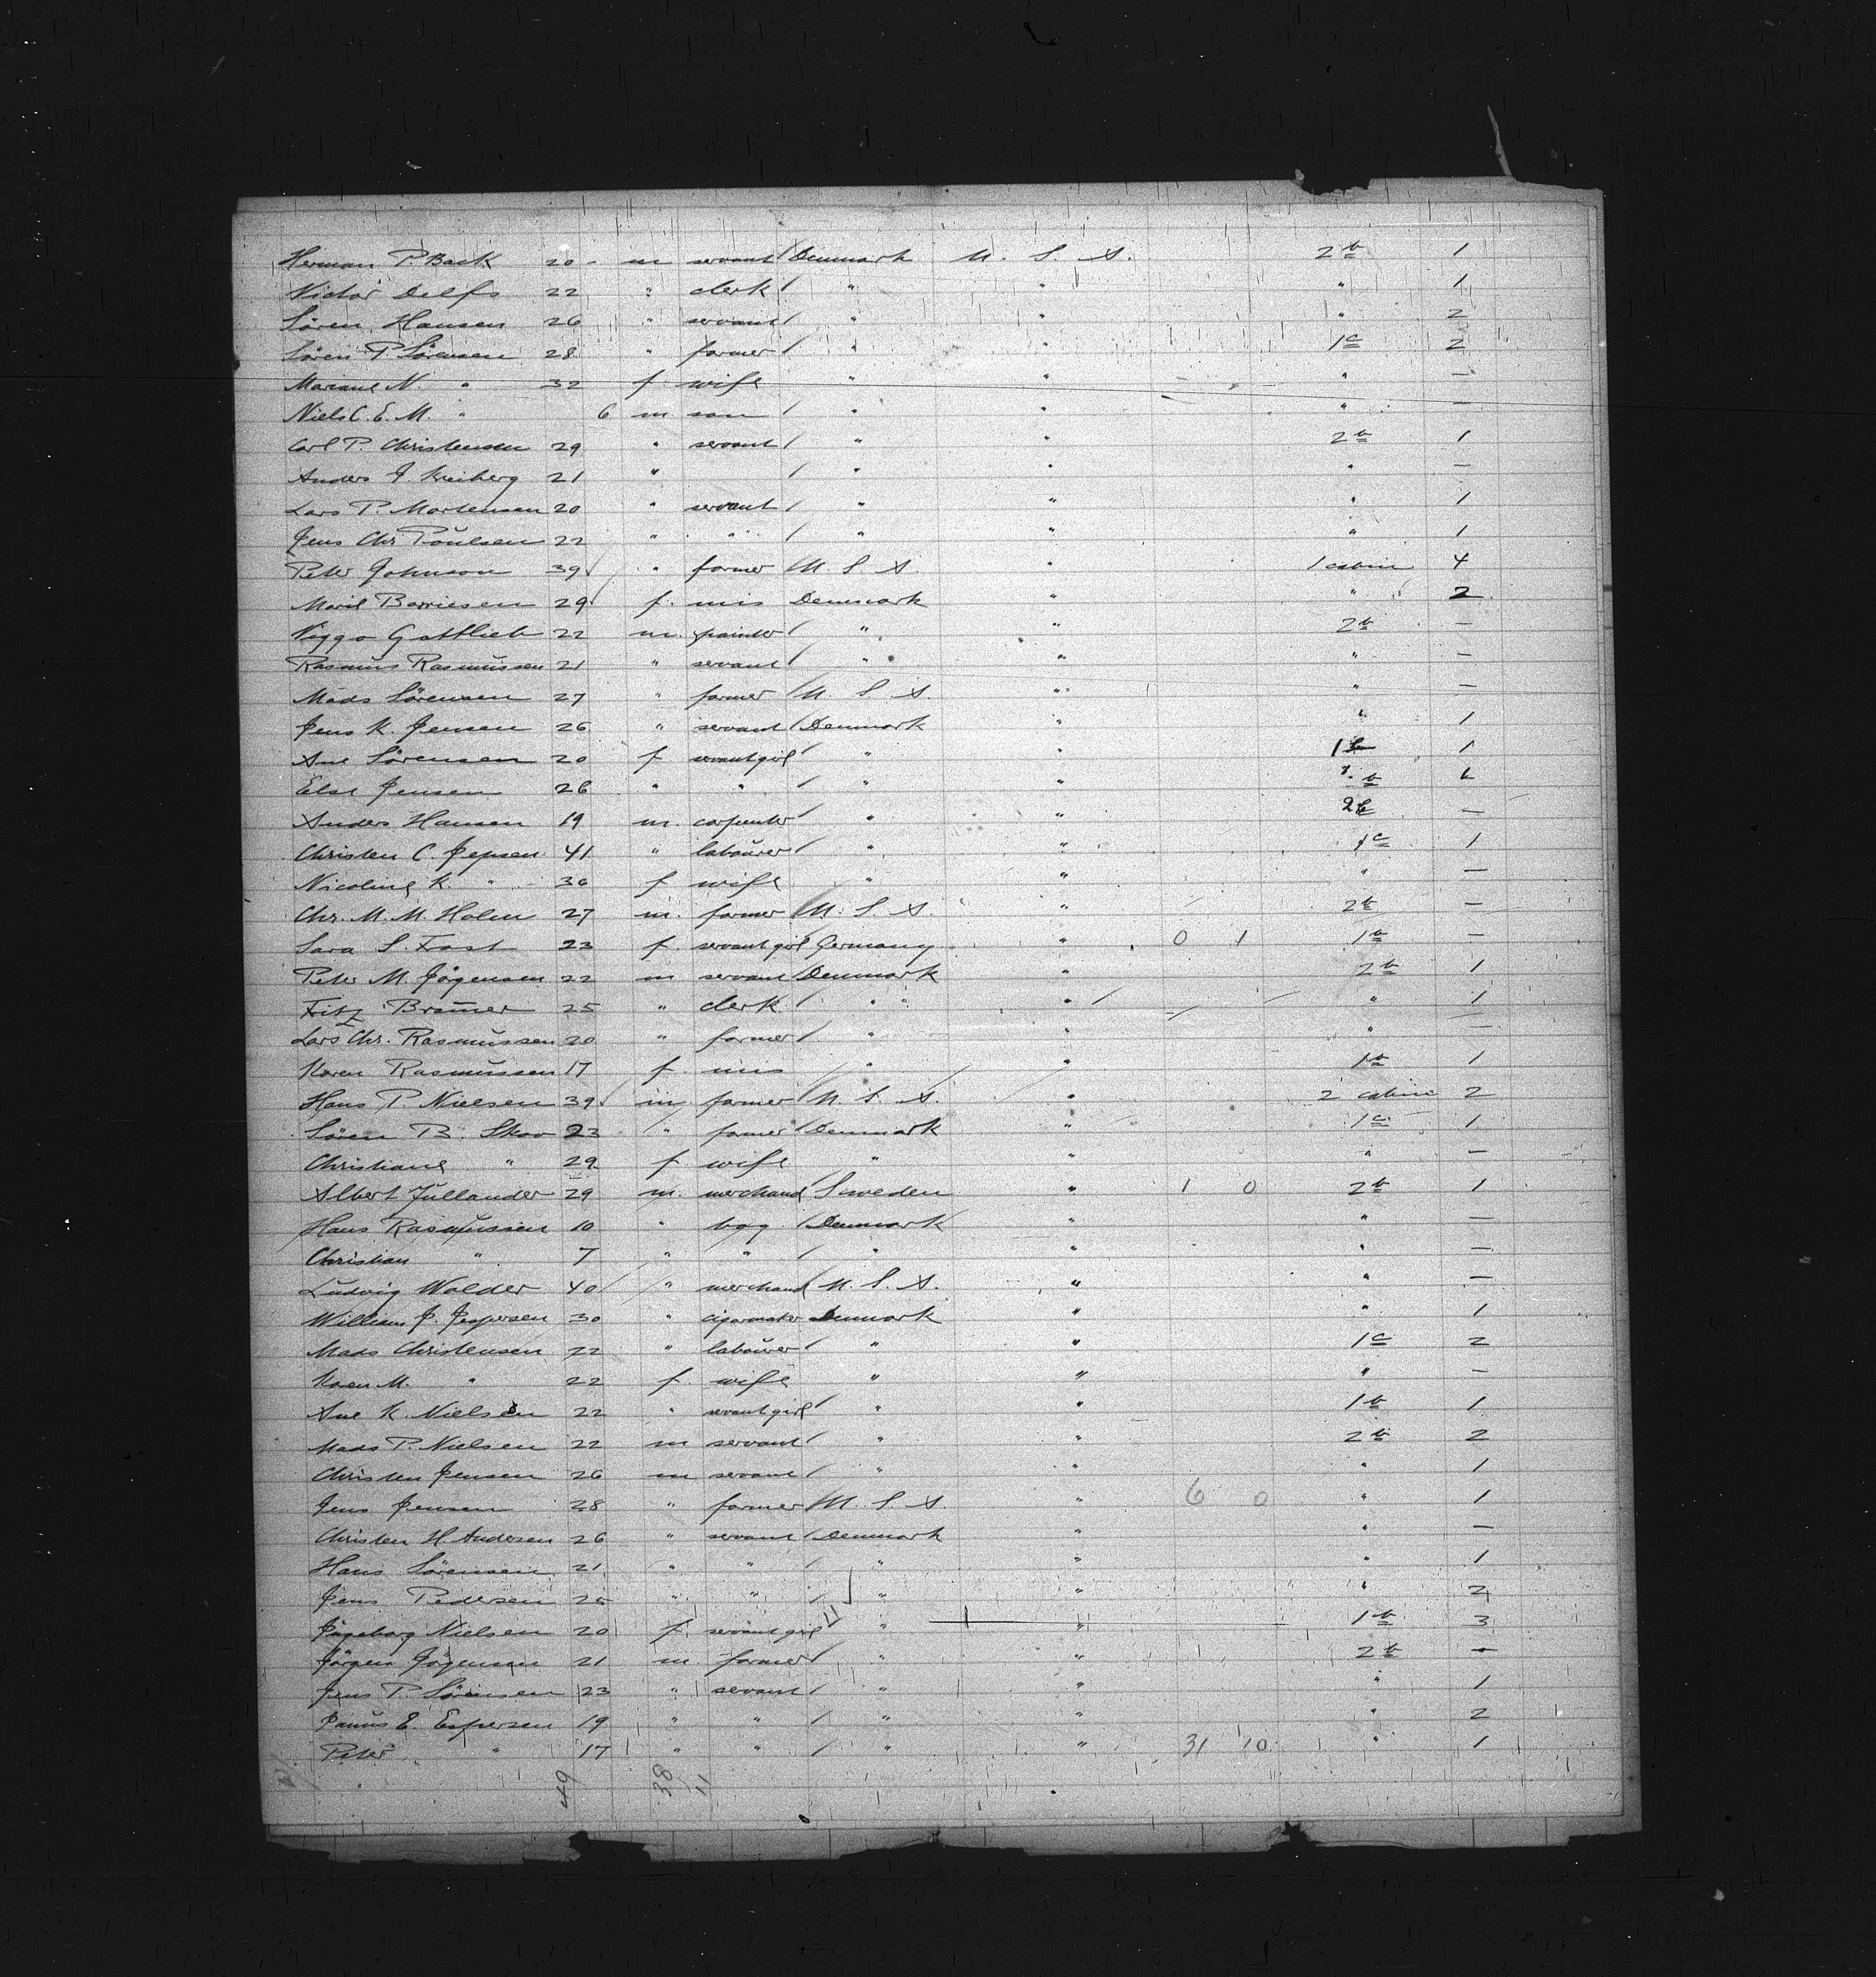 Herman P. Back 20 m servant Denmark U. S. A. 2 b 1
Victor Delfs 22 " clerk " " " 1
Sören Hansen 26 " servant " " " 2
Sören P. Sörensen 28 " farmer " " 1 c 2
Mariane N. " 32 f. wife " " " —
Niels C. E. M. " 6 m. son " " " —
Carl P. Christensen 29 " servant " " 2 b 1
Anders J. 21 " " " " —
Lars P. Mortensen 20 " servant " " " 1
Jens Chr. Poulsen 22 " " " " " 1
Peter Johnson 39 " farmer U. S. A. " 1 cabin 4
29 f. mis Denmark " " 2
Viggo Gottlieb 22 m. painter " " 2 b —
Rasmus Rasmussen 21 " servant " " " —
Mads Sörensen 27 " farmer U. S. A. " " —
Jens K. Jensen 26 " servant Denmark " " 1
Ane Sörensen 20 f servant girl " " 1 b 1
Else Jensen 26 " " " " b
Anders Hansen 19 m. carpenter " " 2 b —
Christen C. Jepsen 41 " labourer " " 1 c 1
Nicoline K. " 36 f wife " " " —
Chr. M. M. Holm 27 m. farmer U. S. A. " 2 b —
Sara S. Fast 23 f. servant girl Germany " 0 1 1 b —
Peter M. Jögensen 22 m servant Denmark " 2 b 1
Fitz 25 " clerk " " " 1
Lars Chr. Rasmussen 20 " farmer " " " —
Karen Rasmussen 17 f. mis " " 1 b 1
Hans P. Nielsen 39 m farmer U. S. A. " 2 cabin 2
Sören B. Skov 23 " farmer Denmark " 1 c 1
Christiane " 29 f wife " " " —
Albert Jullander 29 m. merchand Sweden " 1 0 2 b 1
Hans Rasmussen 10 " boy Denmark " " —
Christian " 7 " " " " " —
Ludvig Walder 40 " merchand U. S. A. " " —
William J. Jespersen 30 " cigarmaker Denmark " " 1
Mads Christensen 22 " labourer " " 1 c 2
Karen M. " 22 f. wife " " " —
Ane K. Nielsen 22 " servant girl " " 1 b 1
Mads P. Nielsen 22 m servant " " 2 b 2
Christen Jensen 26 m servant " " " 1
Jens Jensen 28 " farmer U. S. A. " 6 0 " 1
Christen H. Andersen 26 " servant Denmark " " —
Hans Sörensen 21 " " " " " 1
Jens Pedersen 25 " " " " " 2
Jngeborg Nielsen 20 f. servant girl " " 1 b 3
Jörgen Jögensen 21 m farmer " " 2 b —
Jens P. Sörensen 23 " servant " " " 1
E. Espersen 19 " " " " " 2
Peter " 17 " " " " 31 10 " 1
49 38 11